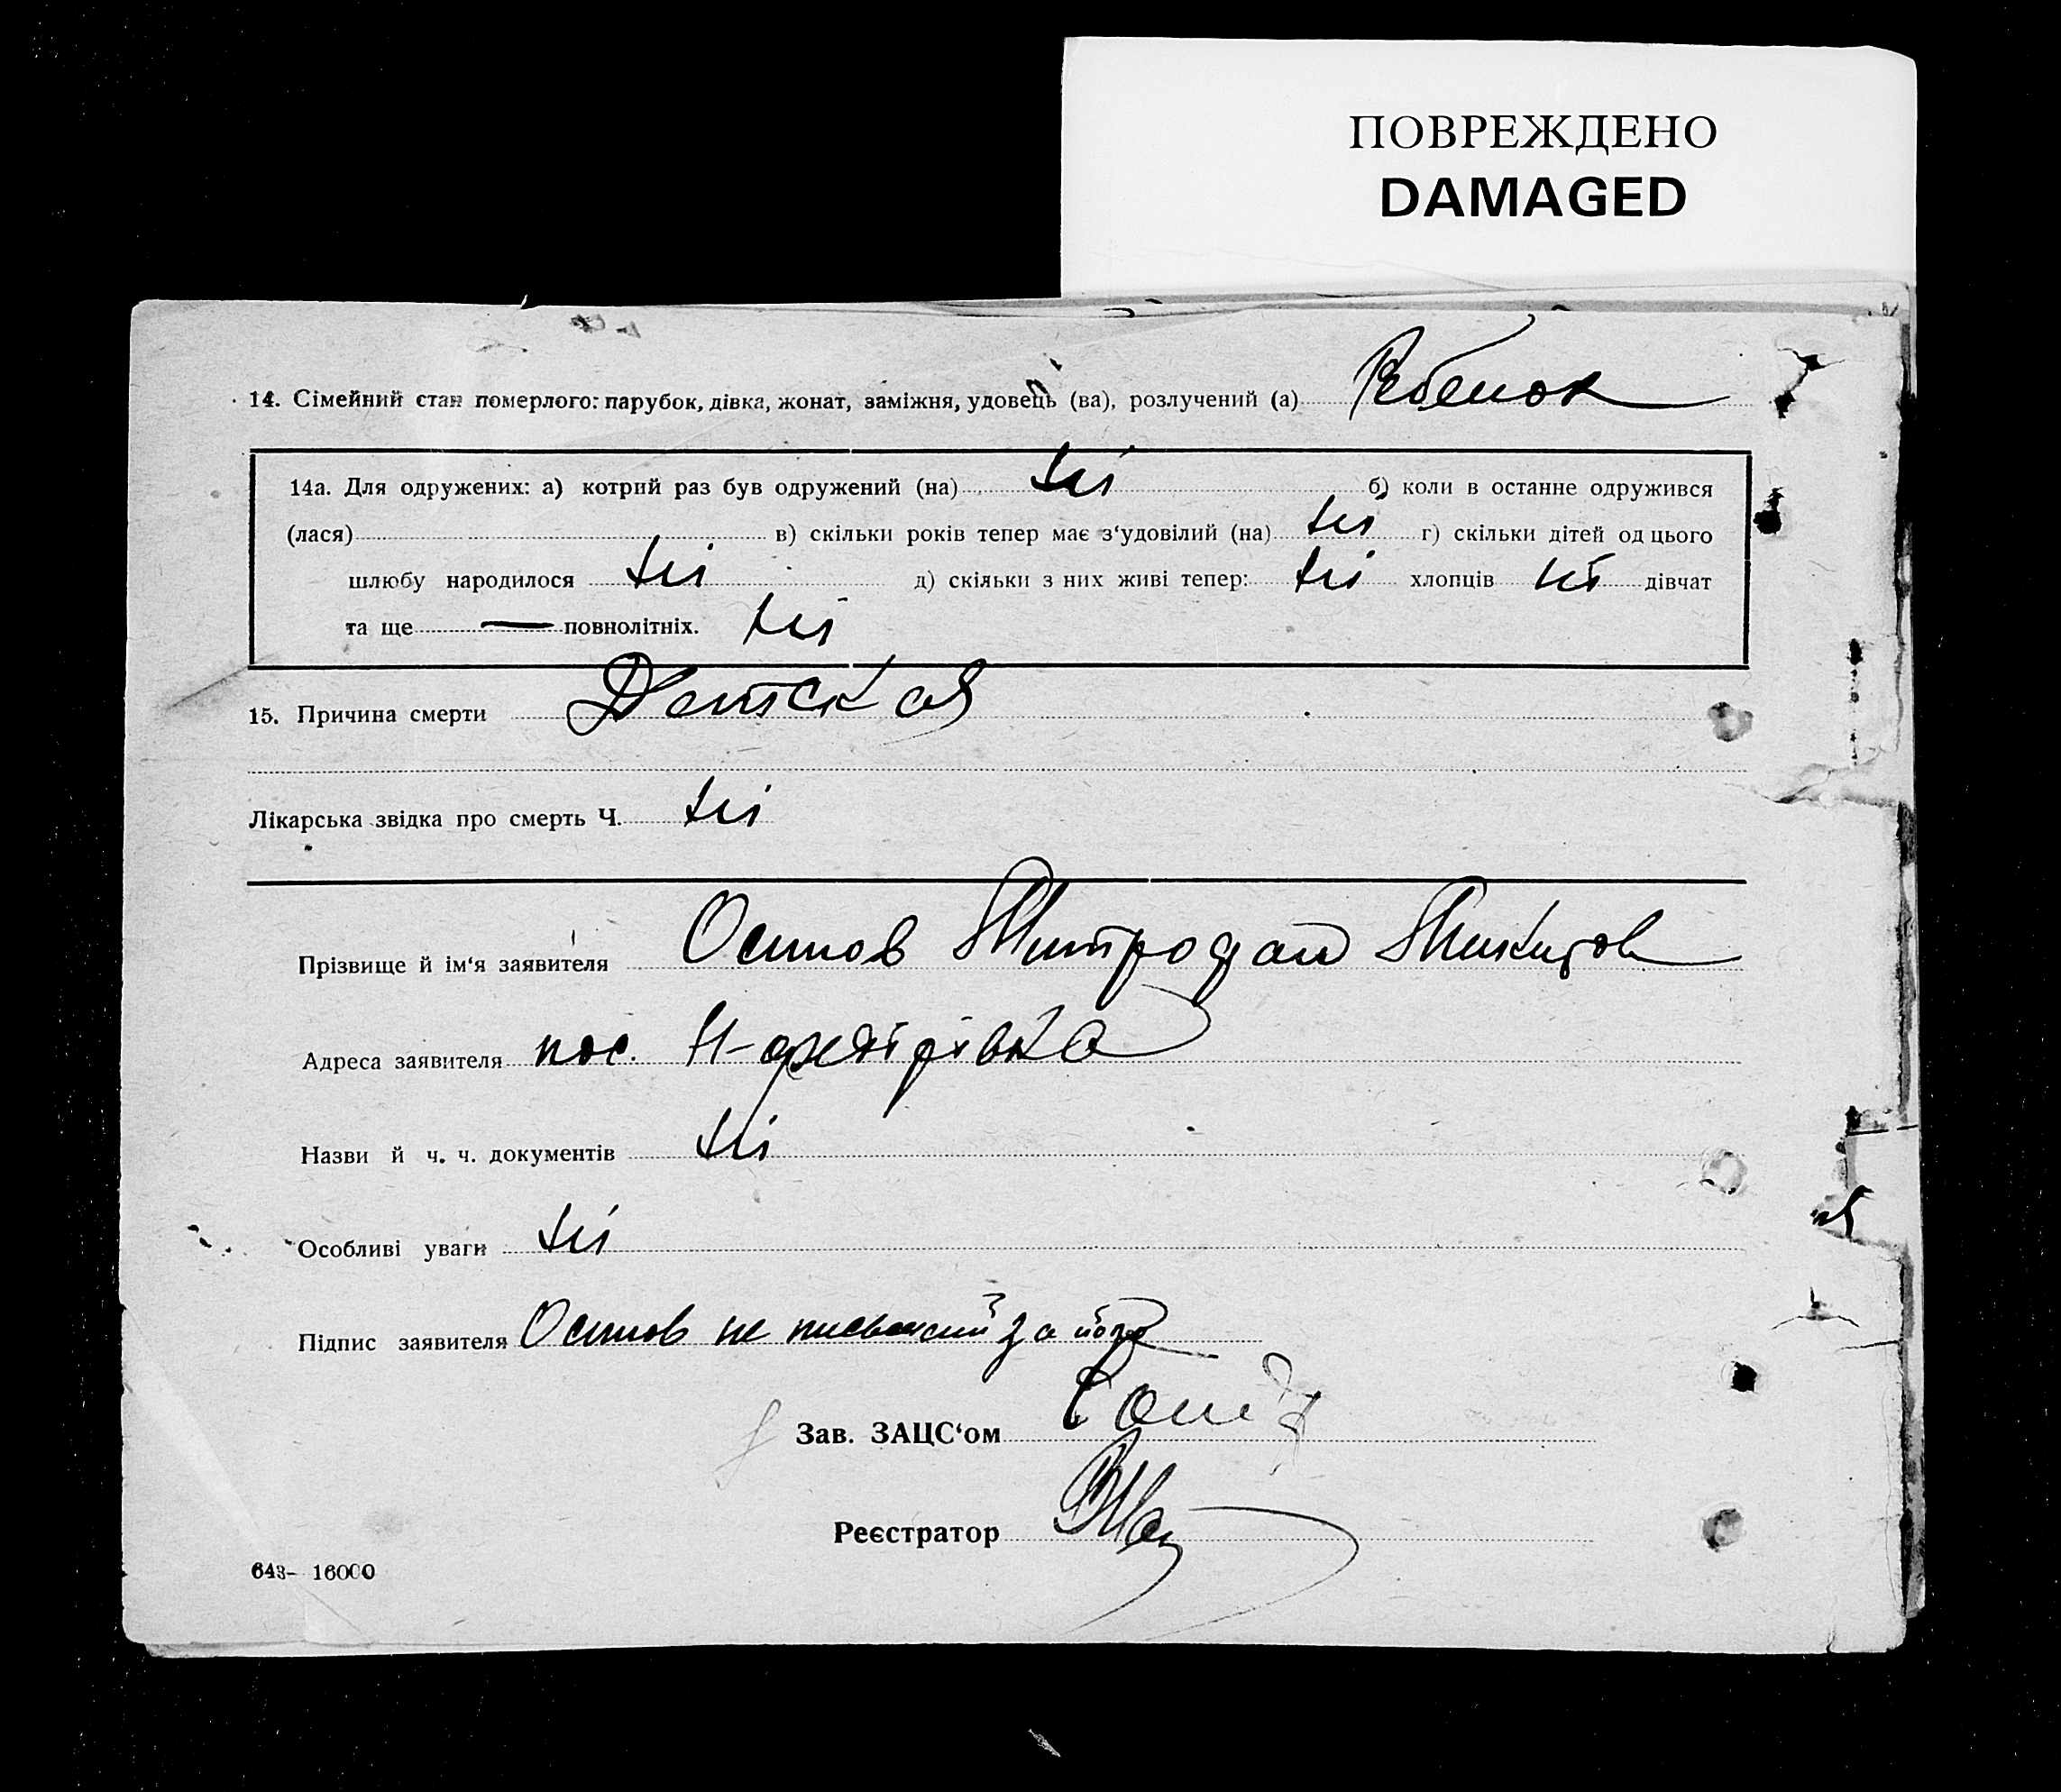 ПОВРЕЖДЕНО
DAMAGED
14. Сімейний стан померлого: парубок, дівка, жонат, заміжня, удовець (ва), розлучений (а) Ребенок
14а. Для одружених: а) котрий раз був одружений (на) ні б) коли в останнє одружився
(лася) в) скільки років тепер має з‘удовілий (на) ні г) скільки дітей од цього
шлюбу народилося ні д) скільки з них живі тепер: ні хлопців ні дівчат
та ще — повнолітніх. ні
15. Причина смерти Детская
Лікарська звідка про смерть Ч. ні
Прізвище й ім‘я заявителя Осипов Митрофан Никитов
Адреса заявителя пос. Н-Дмитрівка
Назви й ч. ч. документів ні
Особливі уваги ні
Підпис заявителя Осипов не письменний за його
Зав. ЗАЦС‘ом
Реєстратор
643- 16000